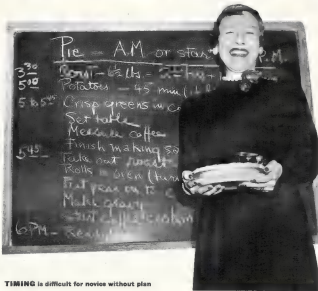 Pie - AM or P.M.
3:30 Roast - 6½ lbs. -
5:00 Potatoes - 45 min
5 to 5:45 Crisp greens in
Set table
Measure coffee
Finish making
5:45 Take out roast
Rolls - oven
Put peas on to
Make gravy
Start coffee
6 P.M. - Ready!
TIMING is difficult for novice without plan